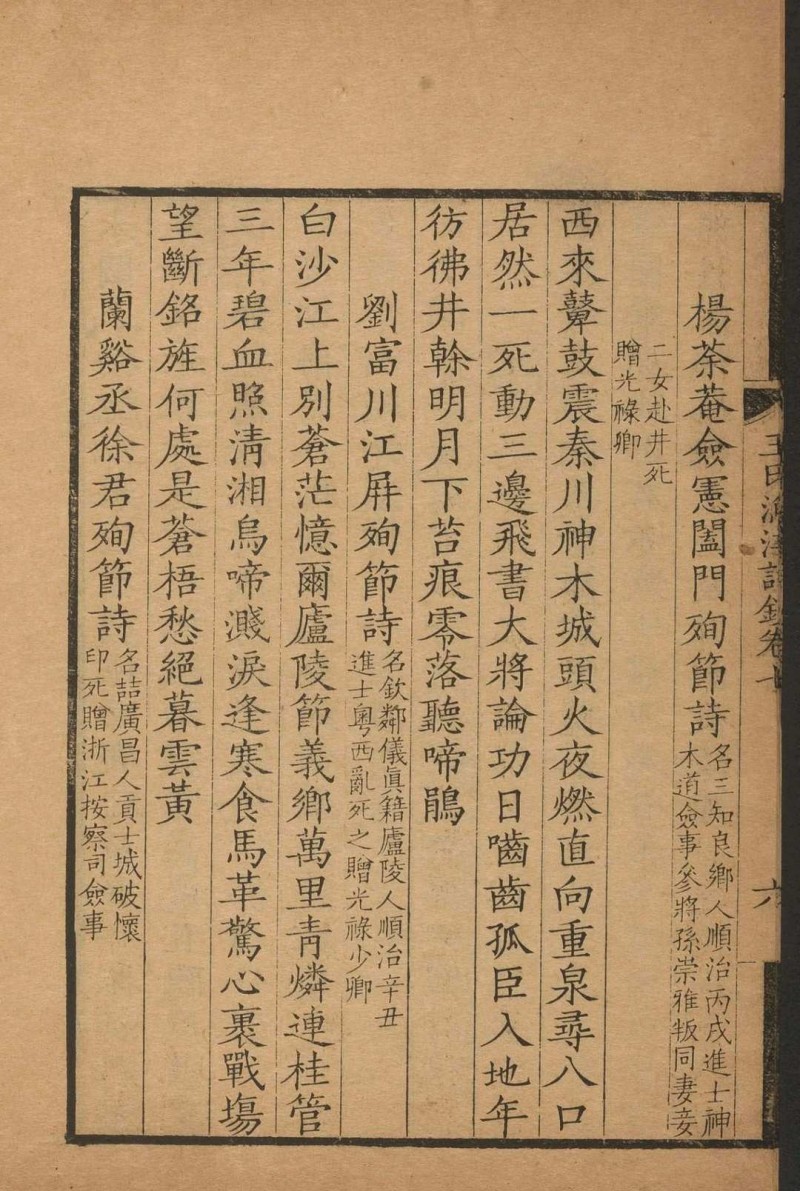 詩鈔卷七
六
楊荼菴僉憲闔門殉節詩
名三知良鄉人順治丙戌進士神
木道僉事參將孫崇雅叛同妻妾
二女赴井死
贈光祿卿
西來鼙鼓震秦川神木城頭火夜燃直向重泉尋八口
居然一死動三邊飛書大將論功日嚙齒孤臣入地年
彷彿井榦明月下苔痕零落聽啼鵑
劉富川江屛殉節詩
名欽鄰儀眞籍廬陵人順治辛丑
進士粵西亂死之贈光祿少卿
白沙江上別蒼茫憶爾廬陵節義鄉萬里靑燐連桂管
三年碧血照淸湘烏啼濺淚逢寒食馬革驚心裹戰塲
望斷銘旌何處是蒼梧愁絕暮雲黃
蘭谿丞徐君殉節詩
名喆廣昌人貢士城破懷
印死贈浙江按察司僉事